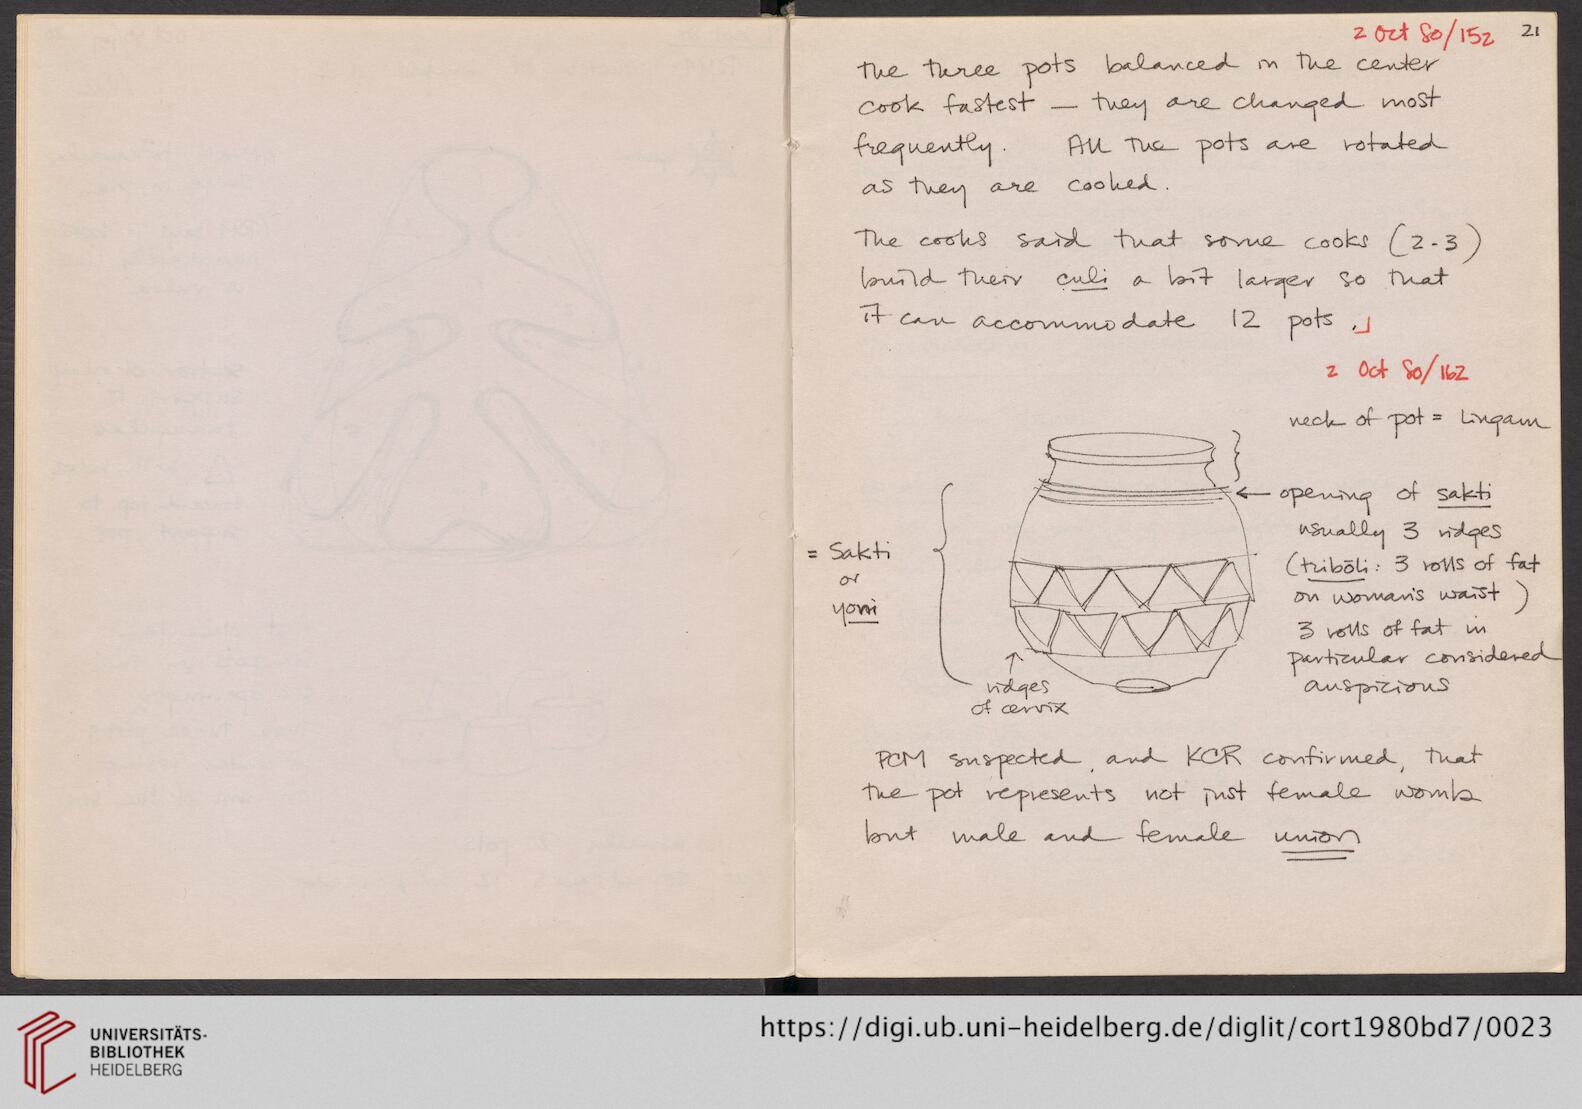 2 Oct 80/152
21
The three pots balanced in the center
cook fastest — they are changed most
frequently. All the pots are rotated
as they are cooked.
The cooks said that some cooks (2-3)
build their culi a bit larger so that
it can accommodate 12 pots.
2 Oct 80/162
neck of pot = Lingam
opening of sakti
usually 3 ridges
(tribōli: 3 rolls of fat
on woman's waist)
3 rolls of fat in
particular considered
auspicious
= Sakti
or
yoni
ridges
of cervix
PCM suspected, and KCR confirmed, that
the pot represents not just female womb
but male and female union
UNIVERSITÄTS-
BIBLIOTHEK
HEIDELBERG
https://digi.ub.uni-heidelberg.de/diglit/cort1980bd7/0023